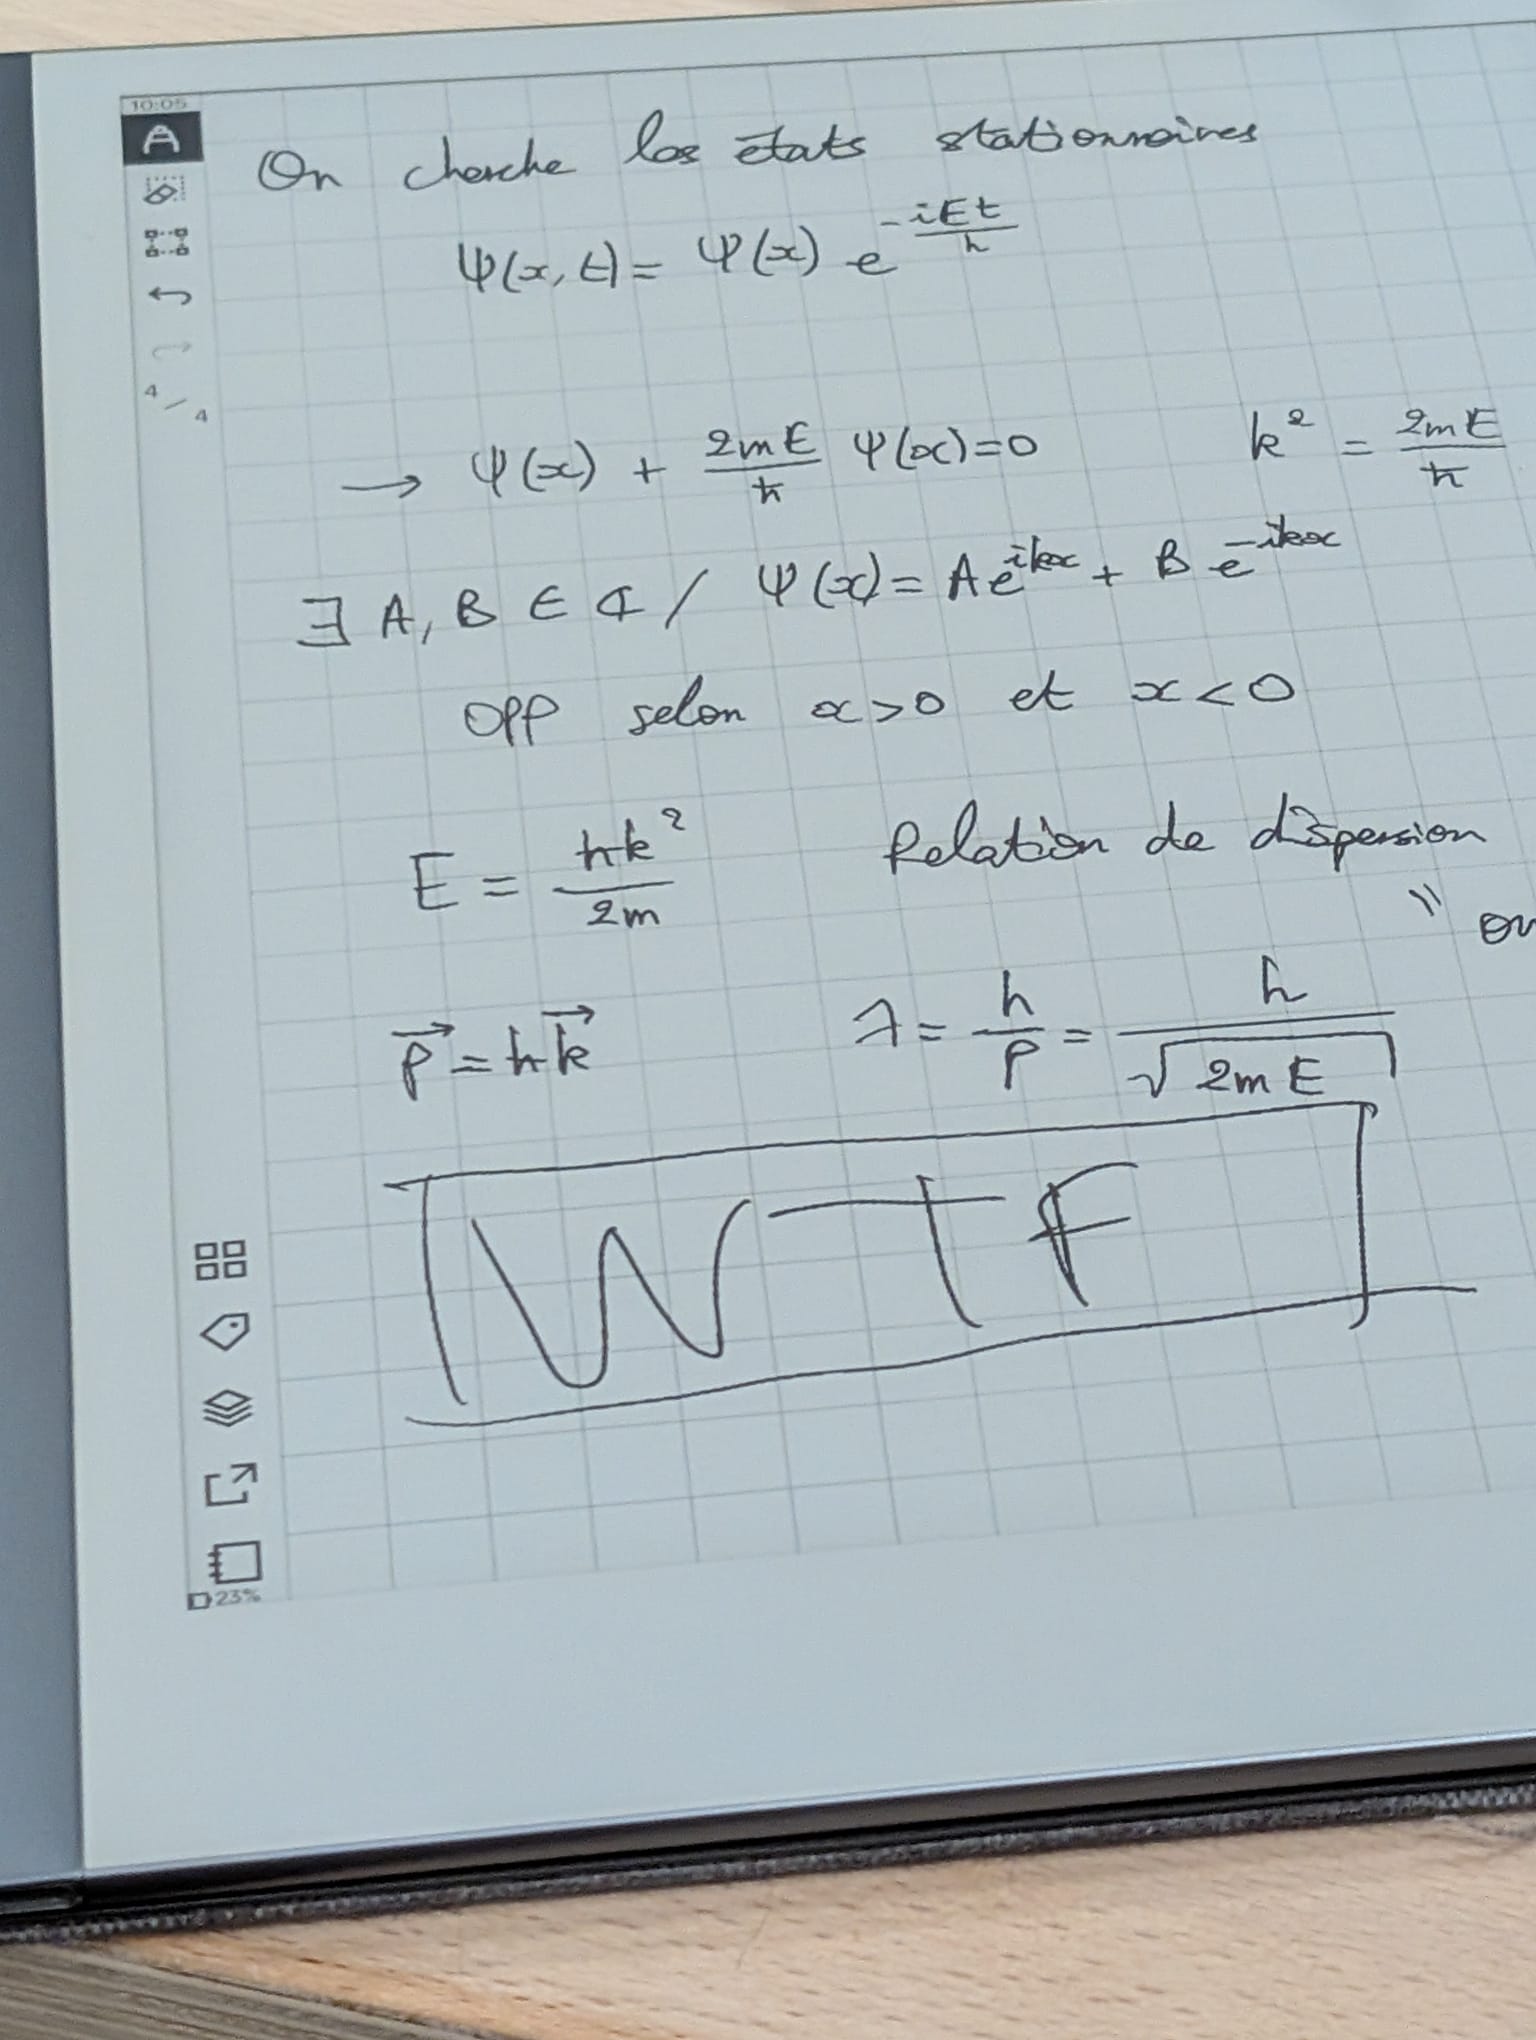 10:05
A
On cherche les états stationnaires
Ψ(x, t) = Ψ(x) e^(-iEt/ħ)
4/4
→ Ψ(x) + 2mE/ħ Ψ(x) = 0 k² = 2mE/ħ
∃ A, B ∈ ℂ / Ψ(x) = A e^(ikx) + B e^(-ikx)
OPP selon x>0 et x<0
E = ħk²/2m Relation de dispersion
"
p⃗ = ħk⃗ λ = h/p = h/√(2mE)
WTF
23%